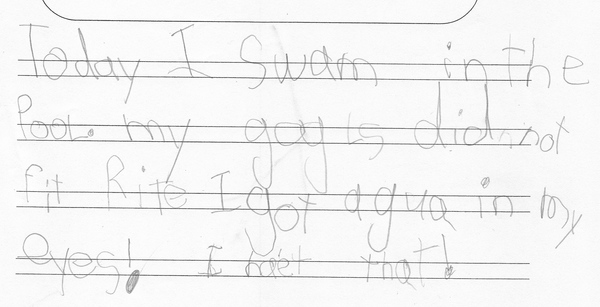 Today I Swam in the
Pool. my gogls did not
fit Rite I got agua in my
eyes! I that!